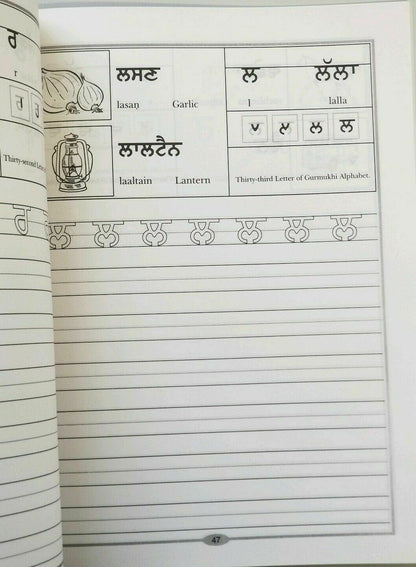 ਰ
r
Thirty-second Letter
ਲਸਣ
lasaṇ Garlic
ਲਾਲਟੈਨ
laaltain Lantern
ਲ ਲੱਲਾ
l lalla
ਲ
Thirty-third Letter of Gurmukhi Alphabet.
ਲ ਲ ਲ ਲ ਲ ਲ ਲ
47